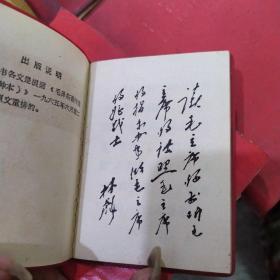 出版说明
书各文是根据《毛泽东著作
种本》》一九六五年六月第二
版文重排的。
读毛主席的书听毛
主席的话照毛主席
的指示办事做毛主席
的好战士
林彪